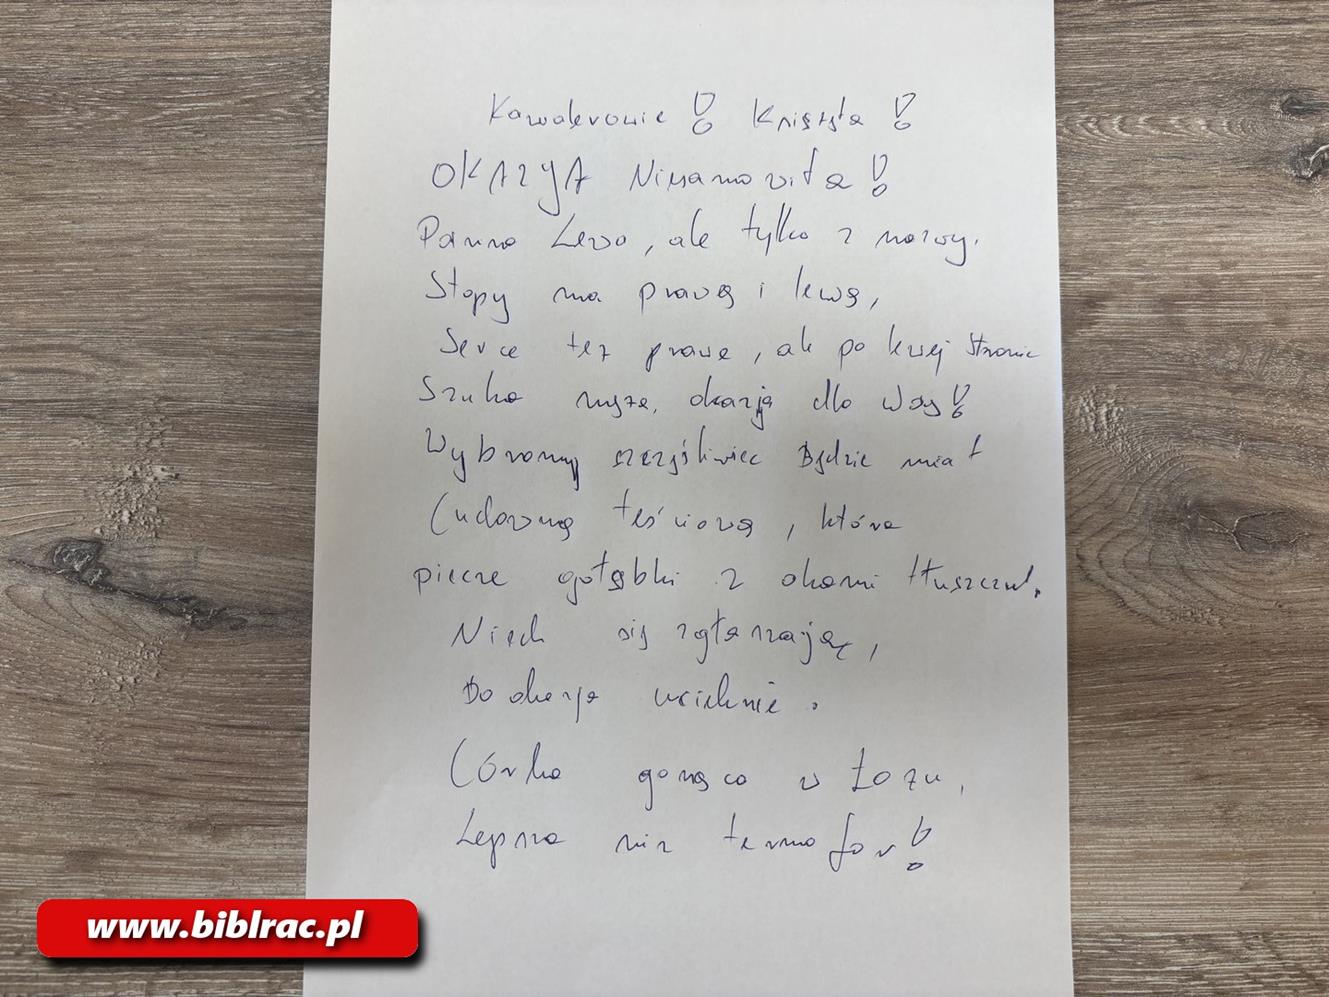 Kawalerowie! Książęta!
OKAZYA Niesamowita!
Panna Lewa, ale tylko z nazwy.
Stopy ma prawą i lewą,
Serce też prawe, ale po lewej stronie
Szuka męża, okazja dla Was!
Wybrany szczęśliwiec Będzie miał
Cudowną teściową, która
piecze gołąbki z okami tłuszczu.
Niech się zgłaszają,
Bo okazja ucieknie.
Córka gorąca w łożu,
Lepsza niż termofor!
www.biblrac.pl